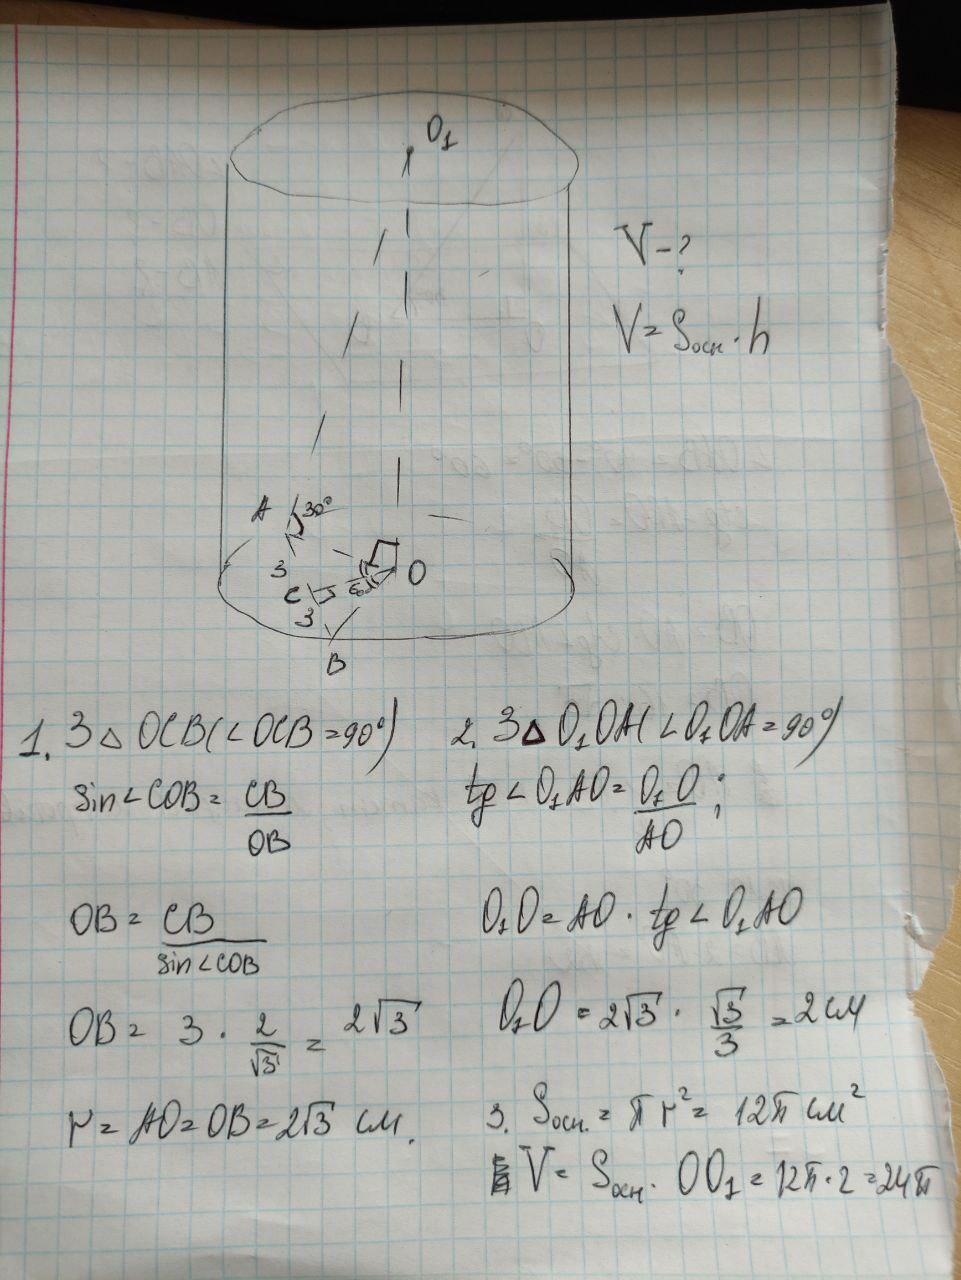 O₁
V-?
V = Sосн · h
A 30°
3
C 60°
O
3
B
1. З △ OCB (∠OCB = 90°)
sin∠COB = CB/OB
OB = CB/sin∠COB
OB = 3 · 2/√3 = 2√3
r = AO = OB = 2√3 см.
2. З △ O₁OA (∠O₁OA = 90°)
tg∠O₁AO = O₁O/AO ;
O₁O = AO · tg∠O₁AO
O₁O = 2√3 · √3/3 = 2 см
3. Sосн. = πr² = 12π см²
V = Sосн. · OO₁ = 12π · 2 = 24π